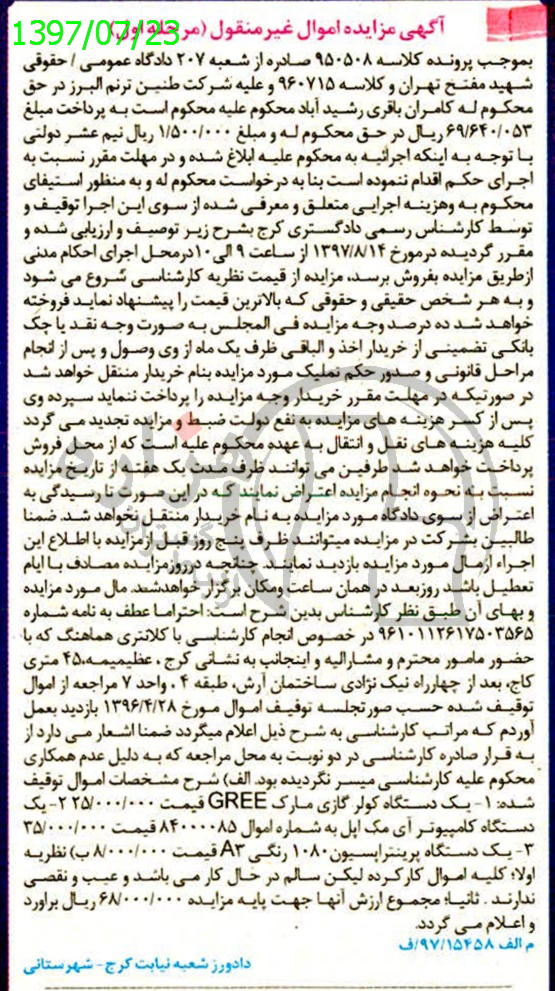 1397/07/23
آگهی مزایده اموال غیر منقول (مرحله اول)
بموجب پرونده کلاسه ۹۵۰۵۰۸ صادره از شعبه ۲۰۷ دادگاه عمومی / حقوقی
شهید مفتح تهران و کلاسه ۹۶۰۷۱۵ و علیه شرکت طنین ترنم البرز در حق
محکوم له کامران باقری رشید آباد محکوم علیه محکوم است به پرداخت مبلغ
۶۹/۶۴۰/۰۵۳ ریال در حق محکوم له و مبلغ ۱/۵۰۰/۰۰۰ ریال نیم عشر دولتی
با توجه به اینکه اجرائیه به محکوم علیه ابلاغ شده و در مهلت مقرر نسبت به
اجرای حکم اقدام ننموده است بنا به درخواست محکوم له و به منظور استیفای
محکوم به وهزینه اجرایی متعلق و معرفی شده از سوی این اجرا توقیف و
توسط کارشناس رسمی دادگستری کرج بشرح زیر توصیف و ارزیابی شده و
مقرر گردیده درمورخ ۱۳۹۷/۸/۱۴ از ساعت ۹ الی ۱۰ درمحل اجرای احکام مدنی
ازطریق مزایده بفروش برسد، مزایده از قیمت نظریه کارشناسی شروع می شود
و به هر شخص حقیقی و حقوقی که بالاترین قیمت را پیشنهاد نماید فروخته
خواهد شد ده درصد وجه مزایده فی المجلس به صورت وجه نقد یا چک
بانکی تضمینی از خریدار اخذ و الباقی ظرف یک ماه از وی وصول و پس از انجام
مراحل قانونی و صدور حکم تملیک مورد مزایده بنام خریدار منتقل خواهد شد
در صورتیکه در مهلت مقرر خریدار وجه مزایده را پرداخت ننماید سپرده وی
پس از کسر هزینه های مزایده به نفع دولت ضبط و مزایده تجدید می گردد
کلیه هزینه های نقل و انتقال به عهده محکوم علیه است که از محل فروش
پرداخت خواهد شد طرفین می توانند ظرف مدت یک هفته از تاریخ مزایده
نسبت به نحوه انجام مزایده اعتراض نمایند که در این صورت تا رسیدگی به
اعتراض از سوی دادگاه مورد مزایده به نام خریدار منتقل نخواهد شد. ضمنا
طالبین بشرکت در مزایده میتوانند ظرف پنج روز قبل از مزایده با اطلاع این
اجراء از مال مورد مزایده بازدید نمایند. چنانچه درروز مزایده مصادف با ایام
تعطیل باشد روزبعد در همان ساعت ومکان برگزار خواهدشد. مال مورد مزایده
و بهای آن طبق نظر کارشناس بدین شرح است: احتراما عطف به نامه شماره
۹۶۱۰۱۱۲۶۱۷۵۰۳۵۶۵ در خصوص انجام کارشناسی با کلانتری هماهنگ که با
حضور مامور محترم و مشارالیه و اینجانب به نشانی کرج ، عظیمیه، ۴۵ متری
کاج، بعد از چهارراه نیک نژادی ساختمان آرش، طبقه ۴ ، واحد ۷ مراجعه از اموال
توقیف شده حسب صورتجلسه توقیف اموال مورخ ۱۳۹۶/۴/۲۸ بازدید بعمل
آوردم که مراتب کارشناسی به شرح ذیل اعلام میگردد ضمنا اشعار می دارد از
به قرار صادره کارشناسی در دو نوبت به محل مراجعه که به دلیل عدم همکاری
محکوم علیه کارشناسی میسر نگردیده بود. الف) شرح مشخصات اموال توقیف
شده: ۱- یک دستگاه کولر گازی مارک GREE قیمت ۲۵/۰۰۰/۰۰۰ ۲- یک
دستگاه کامپیوتر آی مک اپل به شماره اموال ۸۴۰۰۰۰۸۵ قیمت ۳۵/۰۰۰/۰۰۰
۳- یک دستگاه پرینتراپسیون ۱۰۸۰ رنگی A۳ قیمت ۸/۰۰۰/۰۰۰ ب) نظریه
اولا؛ کلیه اموال کارکرده لیکن سالم در حال کار می باشد و عیب و نقصی
ندارند . ثانیا؛ مجموع ارزش آنها جهت پایه مزایده ۶۸/۰۰۰/۰۰۰ ریال براورد
و اعلام می گردد.
م الف ۹۷/۱۵۴۵۸/ف
دادورز شعبه نیابت کرج - شهرستانی